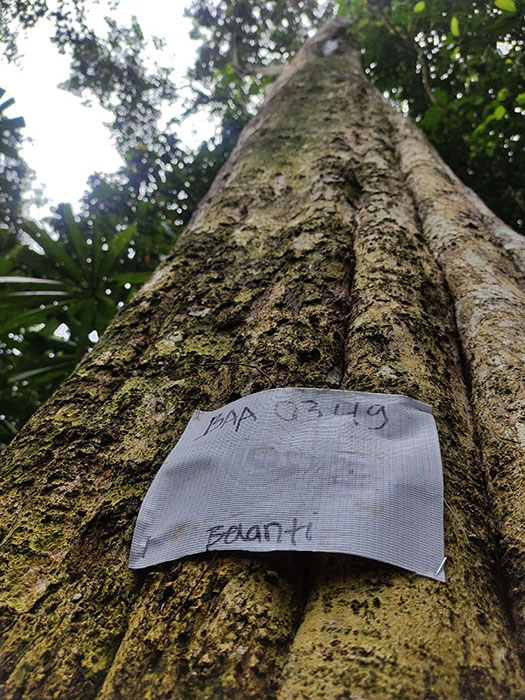 BAA 0349
Baanti